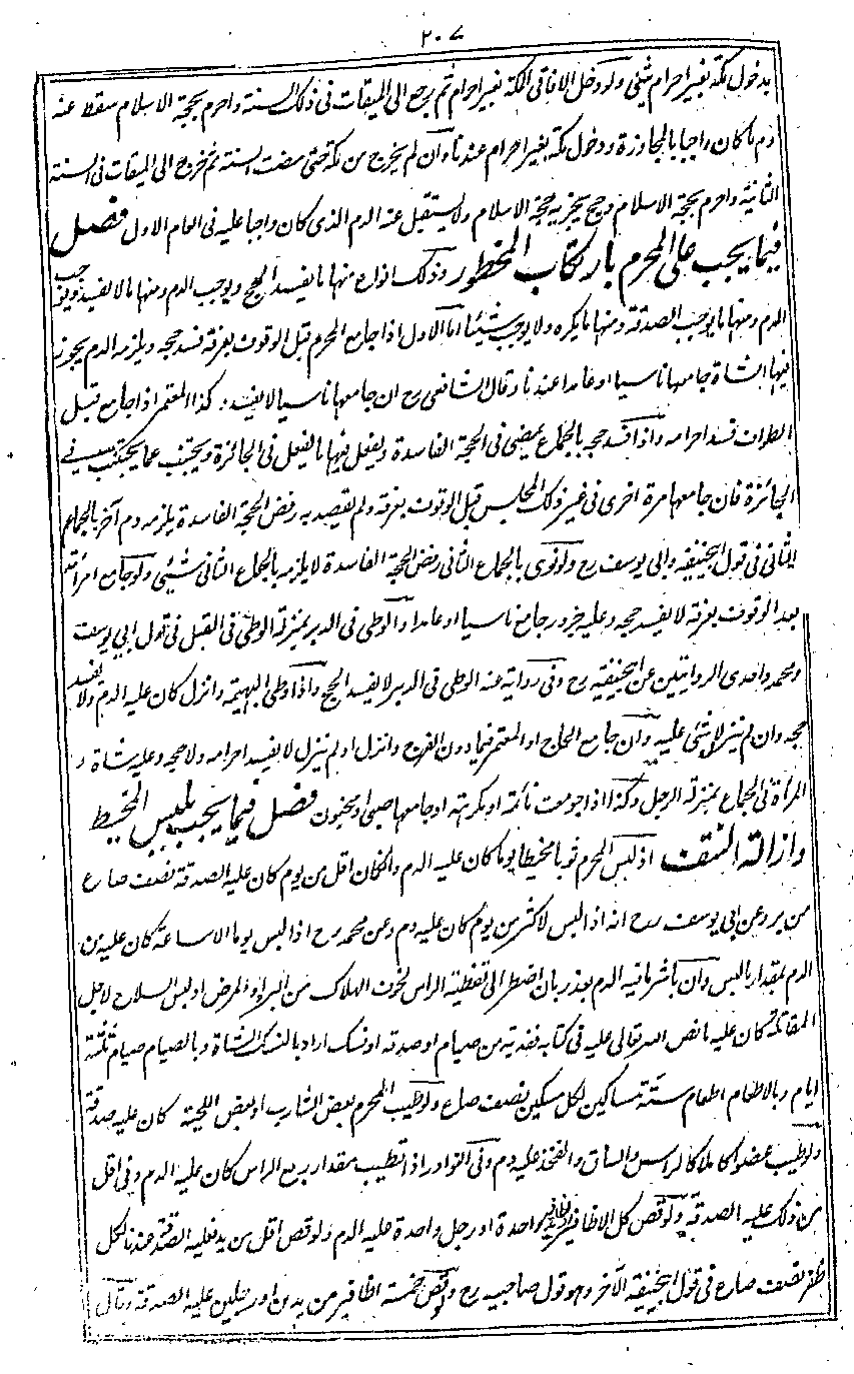 ٢٠٧
بدخول مكة بغير احرام شيئ ولو دخل الافاقي مكة بغير احرام ثم رجع الى الميقات في ذلك السنة واحرم بحجة الاسلام سقط عنه
دم ما كان واجبا بالمجاوزة ودخول مكة بغير احرام عندنا وان لم يخرج من مكة حتى مضت السنة ثم خرج الى الميقات في السنة
الثانية واحرم بحجة الاسلام وحج يجزيه حجة الاسلام ولا يسقط عنه الدم الذى كان واجبا عليه في العام الاول فصل
فيما يجب على المحرم بارتكاب المحظور وذلك انواع منها ما يفسد الحج ويوجب الدم ومنها ما لا يفسد ويوجب
الدم ومنها ما يوجب الصدقة ومنها ما يكره ولا يوجب شيئا اما الاول اذا جامع المحرم قبل الوقوف بعرفة فسد حجه ويلزمه الدم يجوز
فيها الشاة جامعها ناسيا او عامدا عندنا وقال الشافعي رح ان جامعها ناسيا لا يفسد وكذا المعتمر اذا جامع قبل
الطواف فسد احرامه واذا فسد حجه بالجماع يمضي في الحجة الفاسدة ويفعل فيها ما يفعل في الجائزة ويجتنب عما يجتنب في
الجائزة فان جامعها مرة اخرى في غير ذلك المجلس قبل الوقوف بعرفة ولم يقصد به رفض الحجة الفاسدة يلزمه دم آخر بالجماع
الثاني في قول ابيحنيفة وابي يوسف رح ولو نوى بالجماع الثاني رفض الحجة الفاسدة لا يلزمه بالجماع الثاني شيئ ولو جامع امرأته
بعد الوقوف بعرفة لا يفسد حجه وعليه جزور جامع ناسيا او عامدا والوطي في الدبر بمنزلة الوطي في القبل في قول ابي يوسف
ومحمد واحدى الروايتين عن ابيحنيفة رح وفي رواية عنه الوطي في الدبر لا يفسد الحج واذا وطي البهيمة وانزل كان عليه الدم ولا يفسد
حجه وان لم ينزل لا شئ عليه وان جامع الحاج او المعتمر فيما دون الفرج وانزل او لم ينزل لا يفسد احرامه ولا حجه وعليه شاة و
المرأة في الجماع بمنزلة الرجل وكذا اذا جومعت نائمة او مكرهة او جامعها صبي او مجنون فصل فيما يجب بلبس المخيط
وازالة التفث اذا لبس المحرم ثوبا مخيطا يوما كان عليه الدم وان كان اقل من يوم كان عليه الصدقة نصف صاع
من بر وعن ابي يوسف رح انه اذا لبس لاكثر من يوم كان عليه دم وعن محمد رح اذا لبس يوما الا ساعة كان عليه من
الدم بمقدار ما لبس وان باشر ما فيه الدم بعذر بان اضطر الى تغطية الراس لخوف الهلاك من البرد والمرض او لبس السلاح لاجل
المقاتلة كان عليه ما نص الله تعالى عليه في كتابه ففدية من صيام او صدقة او نسك اراد بالنسك الشاة وبالصيام صيام ثلثة
ايام وبالاطعام اطعام ستة مساكين لكل مسكين نصف صاع ولو طيب المحرم بعض الشارب او بعض اللحية كان عليه صدقة
ولو طيب عضوا كاملا كالراس والساق والفخذ عليه دم وفي النوادر اذا تطيب بمقدار ربع الراس كان عليه الدم وفي اقل
من ذلك عليه الصدقة ولو قص كل الاظافير واحدة او رجل واحدة عليه الدم ولو قص اقل من يد فعليه الصدقة عندنا لكل
ظفر نصف صاع في قول ابيحنيفة الآخر وهو قول صاحبيه رح ولو قص خمسة اظافير من يدين او رجلين عليه الصدقة وقال